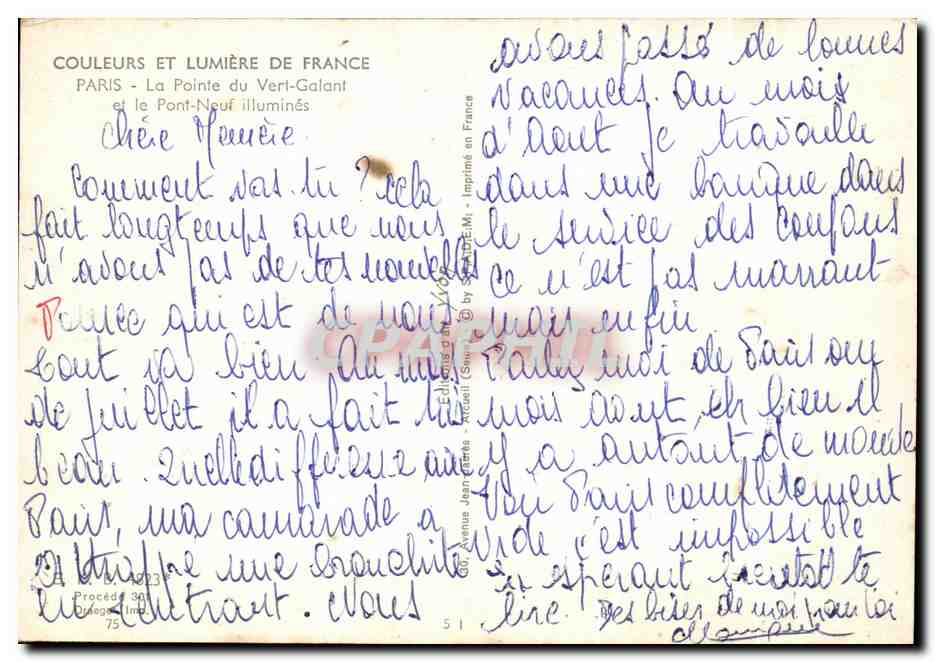 COULEURS ET LUMIÈRE DE FRANCE
PARIS - La Pointe du Vert-Galant
et le Pont-Neuf illuminés
Chère Memère
Comment vas-tu ? cela
fait longtemps que nous
n'avons pas de tes nouvelles
Pour ce qui est de nous
tout va bien Au mois
de juillet il a fait très
beau. Quelle différence avec
Paris, ma camarade a
attrapé une bronchite
en rentrant. Nous
4823
Procédé 301
Draeger Imp.
75
5 1
Editions d'art YVON
30, Avenue Jean-Jaurès - Arcueil (Seine) © by S.P.A.D.E.M. - Imprimé en France
CPAPHIL
avons passé de bonnes
vacances. Au mois
d'Aout je travaille
dans une banque dans
le service des coupons
ce n'est pas marrant
mais enfin
Parlez moi de Paris au
mois aout, eh bien il
y a autant de monde
Voir Paris complètement
vide c'est impossible
En espérant bientot te
lire. Des bises de moi pour toi